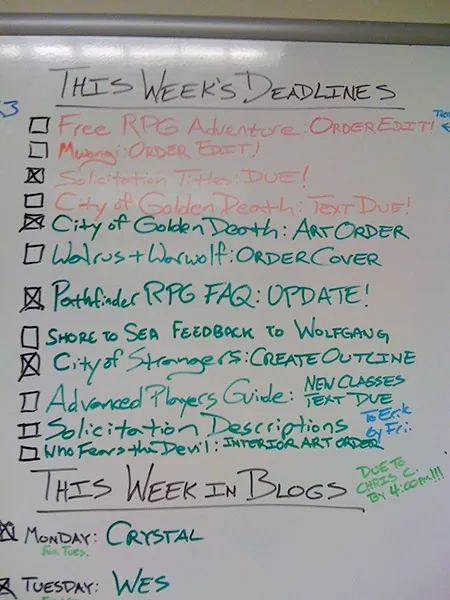 THIS WEEK'S DEADLINES
3
Free RPG Adventure: ORDER EDIT!
Mwangi: ORDER EDIT!
Solicitation Titles: DUE!
City of Golden Death: TEXT DUE!
City of Golden Death: ART ORDER
Walrus + Warwolf: ORDER COVER
Pathfinder RPG FAQ: UPDATE!
SHORE TO SEA FEEDBACK TO WOLFGANG
City of Strangers: CREATE OUTLINE
Advanced Players Guide: NEW CLASSES
TEXT DUE
Solicitation Descriptions To Erik
by Fri.
Who Fears the Devil: INTERIOR ART ORDER
DUE TO
CHRIS C.
BY 4:00PM!!!
THIS WEEK IN BLOGS
MONDAY: CRYSTAL
For Tues.
TUESDAY: WES